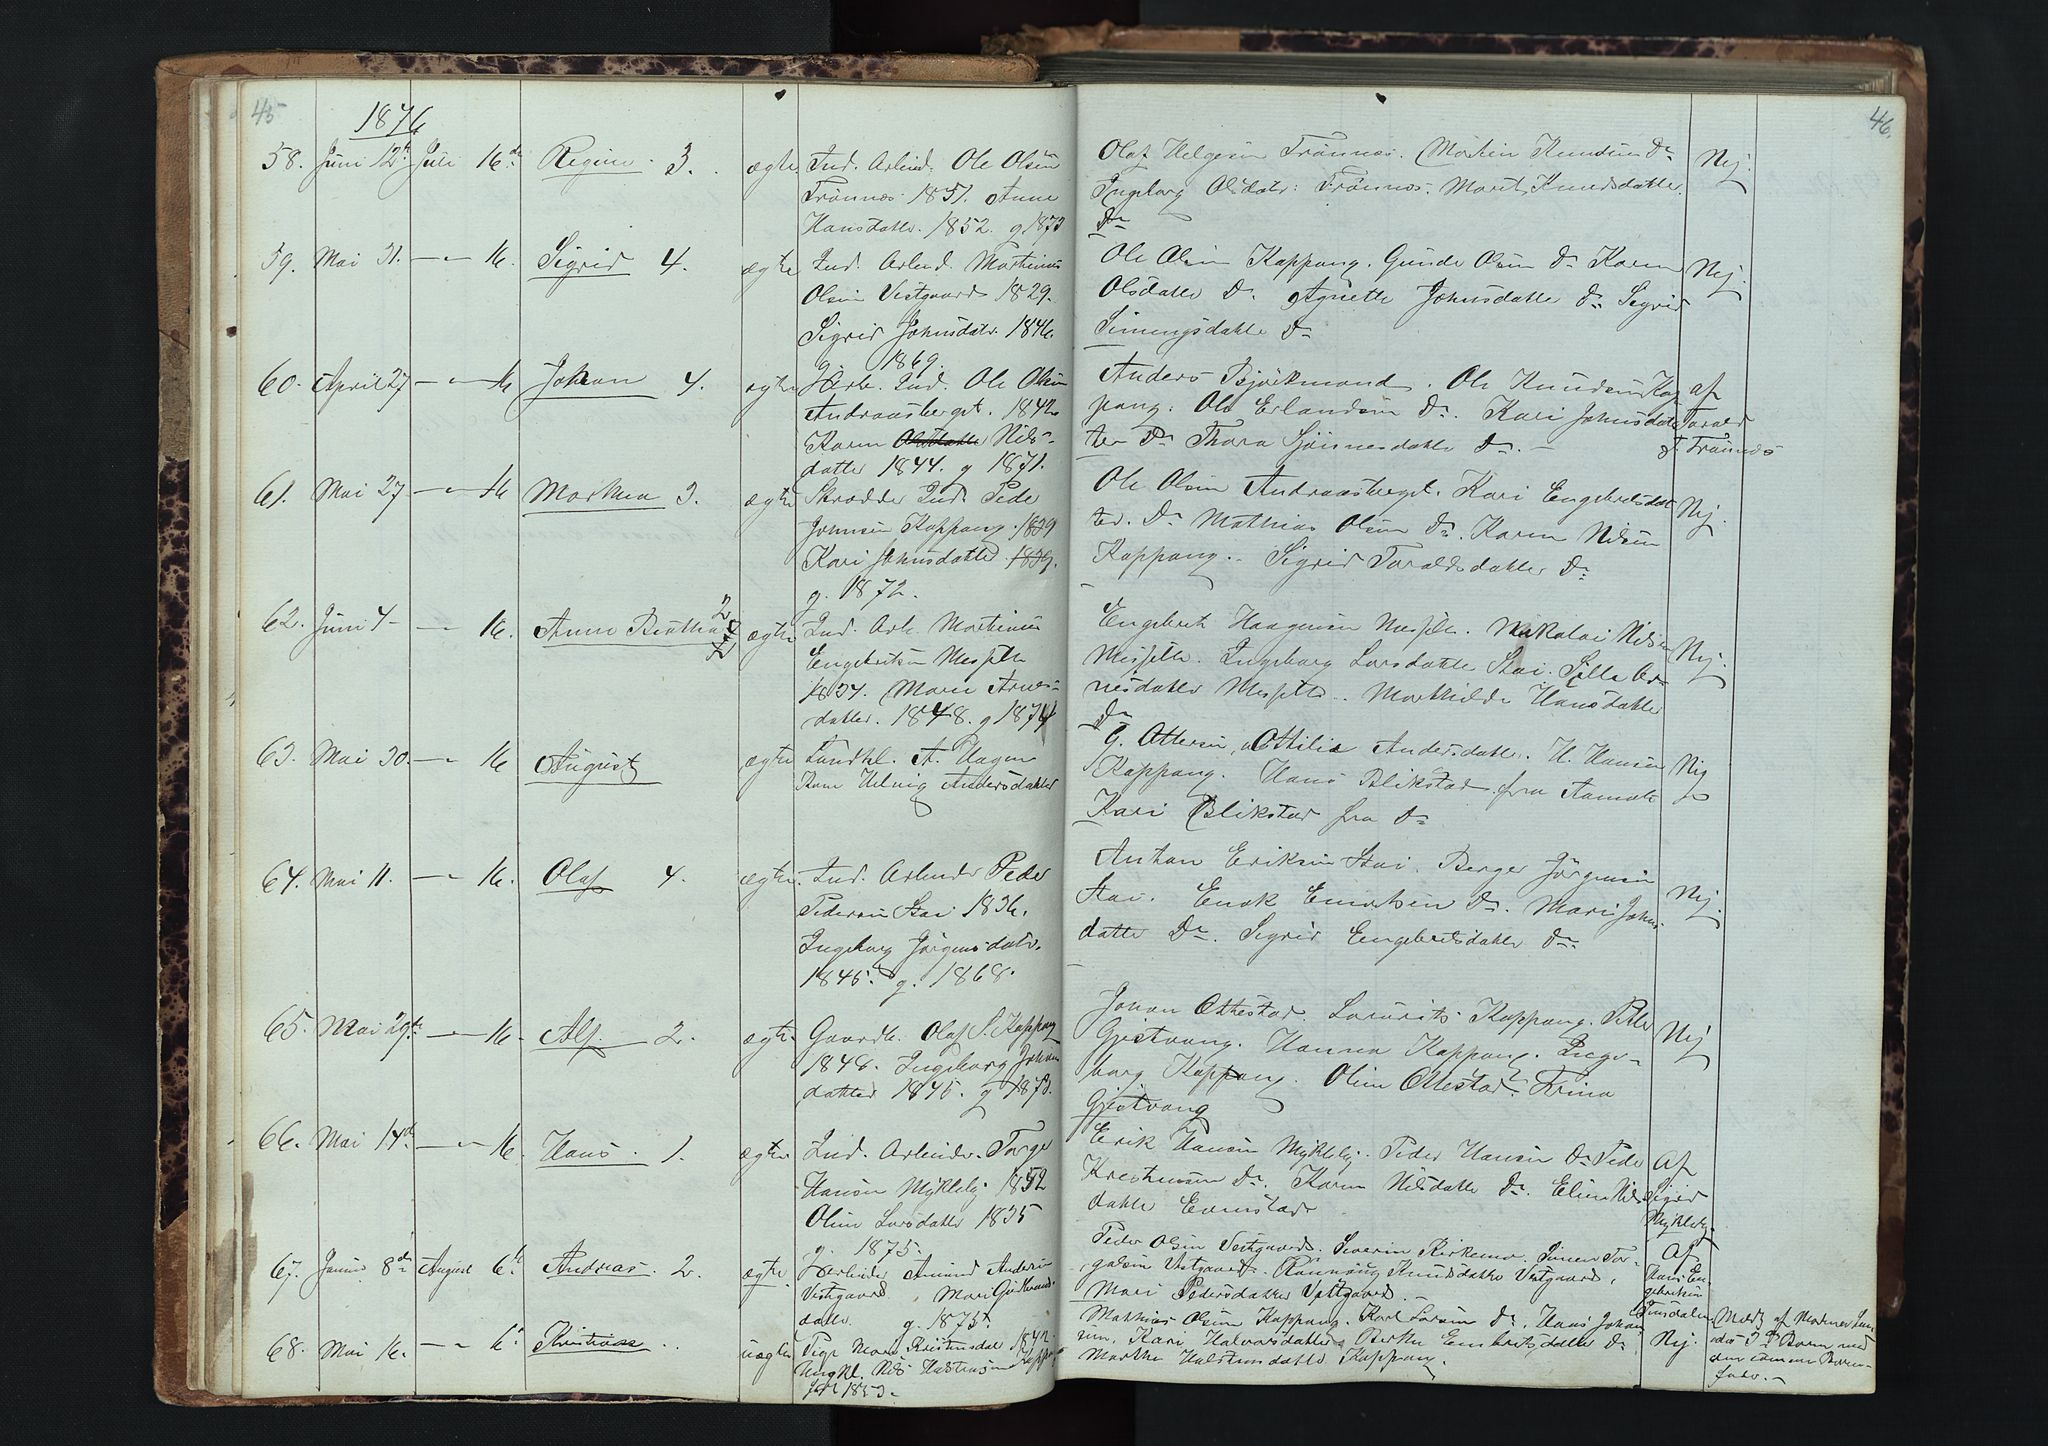 45
1876
58. Juni 12te Juli 16de Regine. 3. ægte Ind. Arbeid. Ole Olsen
Trønnes 1851. Anne
Hansdatter. 1852. g 1873
59. Mai 31. — " — 16. Sigrid 4. ægte Ind. Arbeid. Martinus
Olsen Vestgaard 1829.
Sigrid Johnsdatr. 1846.
g. 1869.
60. April 27 — " — 16 Johan 4. ægte Ind. Ole Olsen
Andraasberget. 1842
Karen Nils-
datter 1844. g 1871.
61. Mai 27 — " — 16 Marthea 3. ægte Skrædder Ind. Peder
Johnsen Koppang. 1839
Kari Johnsdatter. 1839.
g. 1872.
62. Juni 4 — " — 16. Anne Berthea 2 ægte Ind. Arb. Martinus
Engebretsen Messelt
1834. Mari Arnes-
datter. 1848. g 1874
63. Mai 30. — " — 16 August ægte Landhl. A. Hagen
Helvig Andersdatter
64. Mai 11. — " — 16. Olaf 4. ægte. Ind. Arbeider Peder
Pedersen Stai 1836.
Ingeborg Jørgensdatr.
1845. g. 1868.
65. Mai 29te — " — 16. Alf. 2. ægte. Gaardb. Olaf S. Koppang
1848. Ingeborg Johan
datter 1845. g 1873.
66. Mai 14de — " — 16. Hans. 1. ægte. Ind. Arbeider. Torger
Hansen Mykleby 1852
Oline Larsdatter 1835
g. 1875.
67. Juni 8de August 6te Andreas. 2. ægte Amund Andersen
Vestgaard Mari Gulbrands
datter. g. 1875.
68. Mai 16. — " — 6te Kristian .. uægte Pige Mari Kristensdat 1842.
Ungkl. Nils Halstensen Koppang
født 1853.
46.
Olaf Helgesen Trønnes. Morten Knudsen Do Nej.
Ingeborg Olsdatr: Trønnes. Marit Knudsdatter.
Do
Ole Olsen Koppang. Gunder Olsen Do Karen Nej.
Olsdatter Do. Agnethe Johnsdatter Do. Sigrid
Simensdatter Do
Anders Bjørkmand. Ole Knudsen Kop af
pang. Ole Erlandsen Do. Kari Johnsdat Tarald
ter Do Thora Do. — Trønnes
Ole Olsen Andraasberget. Kari Engebretsdat Nej.
ter. Do Mathias Olsen Do. Karen Nilsen
Koppang. Sigrid Taraldsdatter Do
Engebret Haagensen Messelt. Nikolai Nilsen Nej.
Messelt. Ingeborg Larsdatter Stai. Ar-
nesdatter Messelt. Marthilde Hansdatter
Do
G. Ottersen, Othilie Andersdatter. H. Hansen Nej
Koppang. Hans Blikstad fra Aamot
Kari Blikstad fra Do
Anton Eriksen Stai. Berger Jørgensen Nej.
Stai. Enok Do. Mari Johns
datter Do. Sigrid Engebretsdatter Do.
Johan Ottestad. Laurits Koppang. Nej
Gjestvang. Hanna Koppang. Inge-
borg Koppang. Oline Ottestad. Trina
Gjestvang
Erik Hansen Mykleby. Peder Hansen Do Peder Af
Kristensen Do. Karen Nilsdatter Do. Eline Nils Sigrid
datter Evenstad Mykleby
Peder Olsen Vestgaard. Severin Kirkemo. Simen Tor- Af
galsen Vestgaard. Rønnaug Knudsdatter Vestgaard. Hans En-
Mari Pedersdatter Vestgaard. — gebretsen
Mathias Olsen Koppang. Karl Larsen Do. Hans Johan
sen. Kari Halvorsdatter. Berthe Embretsdatter Do Nej.
Marthe Halstensdatter Koppang.
Meldt af Moderen
den samme Barne-
fader. —